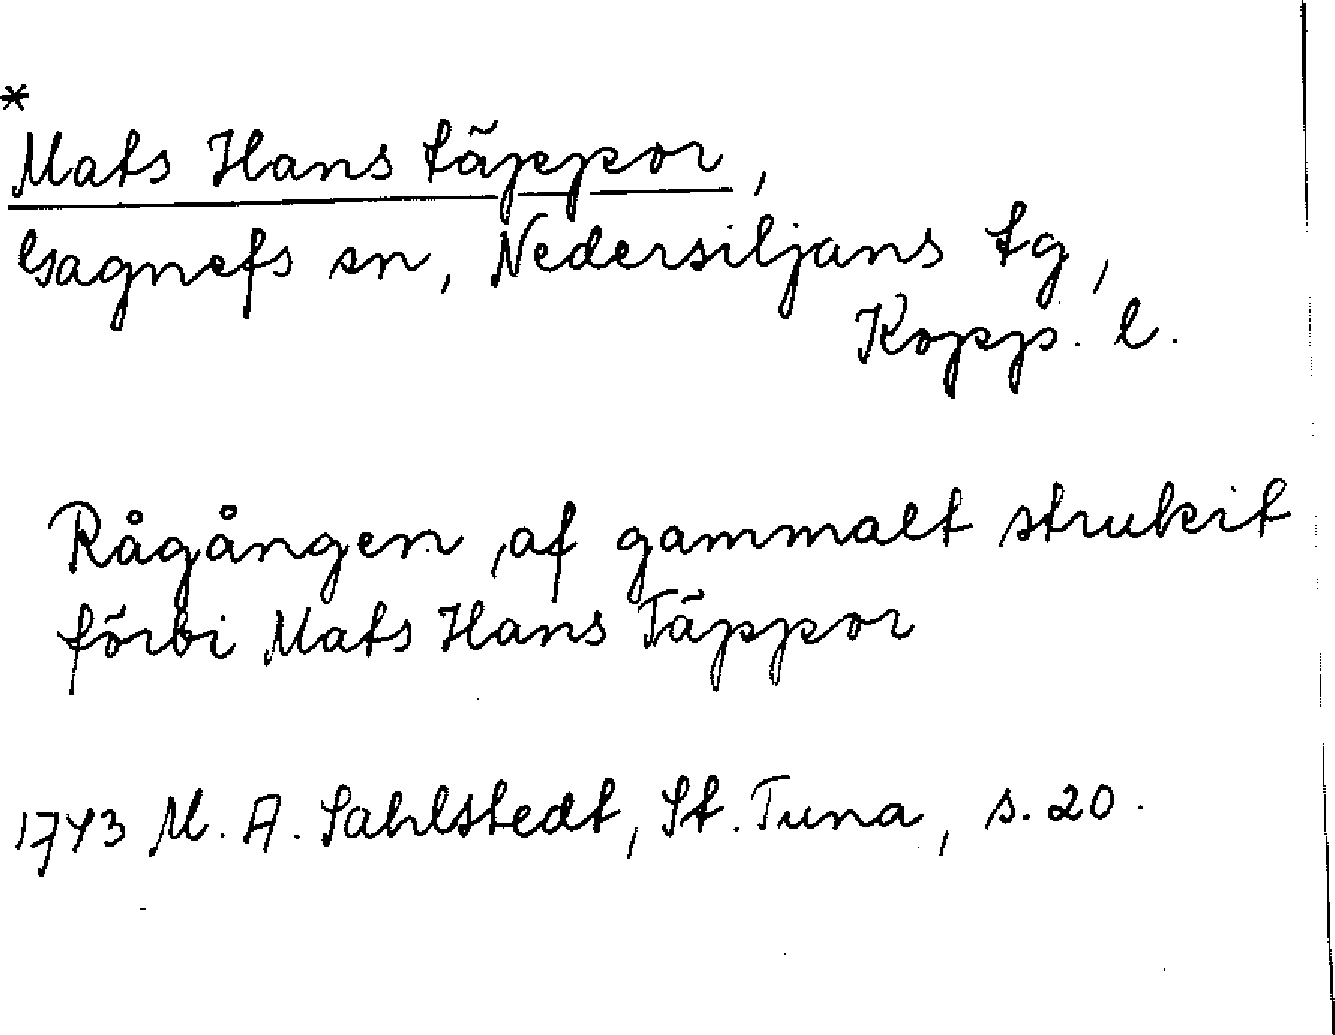 *
Mats Hans täppor,
Gagnefs sn, Nedersiljans tg,
Kopp. l.
Rågången, af gammalt strukit
förbi Mats Hans Täppor
1743 M. A. Sahlstedt, St. Tuna, s. 20.